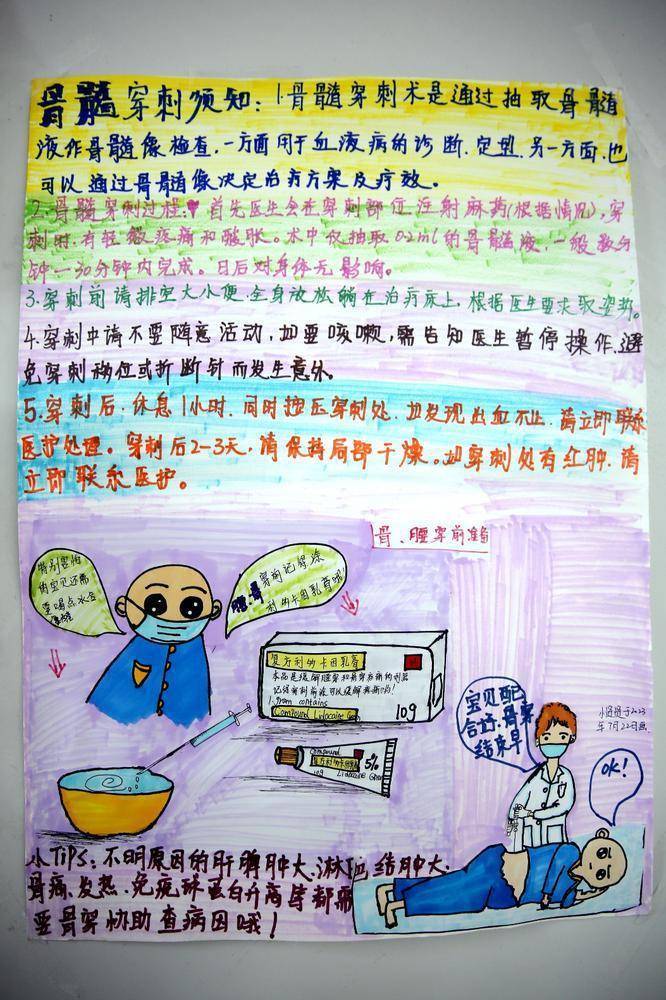 骨髓穿刺须知：1.骨髓穿刺术是通过抽取骨髓
液作骨髓像检查，一方面用于血液病的诊断、定型，另一方面，也
可以通过骨髓像决定治疗方案及疗效。
2.骨髓穿刺过程：首先医生会在穿刺部位注射麻药(根据情况)，穿
刺时，有轻微疼痛和酸胀。术中仅抽取0.2ml的骨髓液，一般数分
钟—30分钟内完成。日后对身体无影响。
3.穿刺前请排空大小便，全身放松躺在治疗床上，根据医生要求取姿势。
4.穿刺中请不要随意活动，如要咳嗽，需告知医生暂停操作，避
免穿刺移位或折断针而发生意外。
5.穿刺后，休息1小时，同时按压穿刺处，如发现出血不止，请立即联系
医护处理。穿刺后2-3天，请保持局部干燥。如穿刺处有红肿，请
立即联系医护。
骨、腰穿前准备
特别害怕
的宝贝还需
要喝点水合
腰.骨穿前记得涂
利多卡因乳膏哦！
复方利多卡因乳膏
1.gram contains
Compound Lidocaine Cream
10g
Compound
复方利多卡因乳膏
5%
10g Lidocaine Cream
宝贝配
合好，骨穿
结束早
于2023
年7月22日画
OK！
小TiPS：不明原因的肝脾肿大、淋巴结肿大、
骨痛、发热、免疫球蛋白升高等都需
要骨穿协助查病因哦！